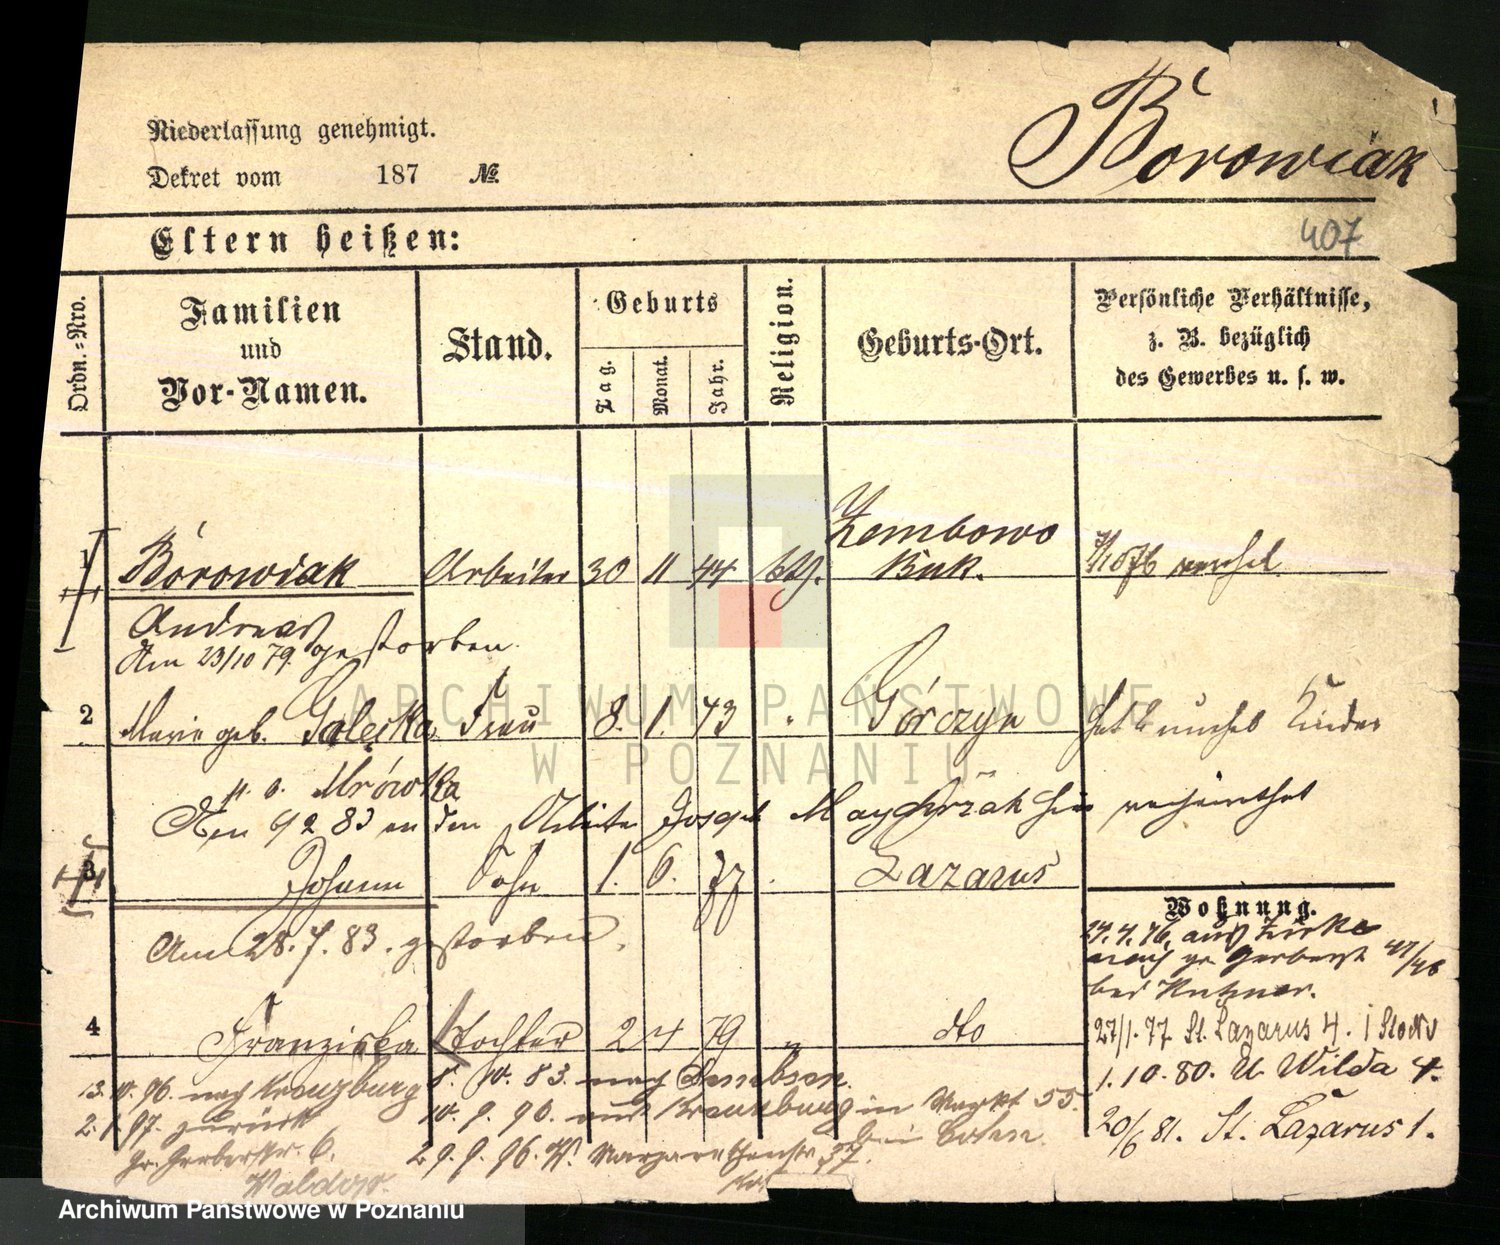 Borowiak
Niederlassung genehmigt.
Dekret vom 187 №.
407
Eltern heißen:
Ordn.-Nro.
Familien
und
Vor-Namen.
Stand.
Geburts
Tag.
Monat.
Jahr.
Religion.
Geburts-Ort.
Persönliche Verhältnisse,
z. B. bezüglich
des Gewerbes u. s. w.
Zembowo
1 Borowiak Arbeiter 30 11 44 kth. Buk.
Andreas
Am 23/10 79. gestorben.
2 Marie geb. Galecka Frau 8. 1. 43 " Górczyn Kinder
Mrówka
Am 9 2 83 an den Arbeiter Josef hier verheirathet
3 Johann Sohn 1. 6. 77 Lazarus
Am 28. 7. 83. gestorben.
Wohnung.
24. 4. 76. aus Zirke
nach gr Gerberst 47/48
bei
4 Franziska Tochter 2 4 79 " dto
27/1. 77. St. Lazarus 4. I Stock
1. 10. 80. U Wilda 4.
20/6 81. St. Lazarus 1.
96. nach Kreuzburg 8. 10. 83. nach
2. 1. 97. zurück 10. 9. 96. aus Kreuzburg in Markt 55.
Gr. Gerberstr. 6. 29. 9. 96. W. Margarethenstr 37.
ARCHIWUM PAŃSTWOWE
W POZNANIU
Archiwum Państwowe w Poznaniu